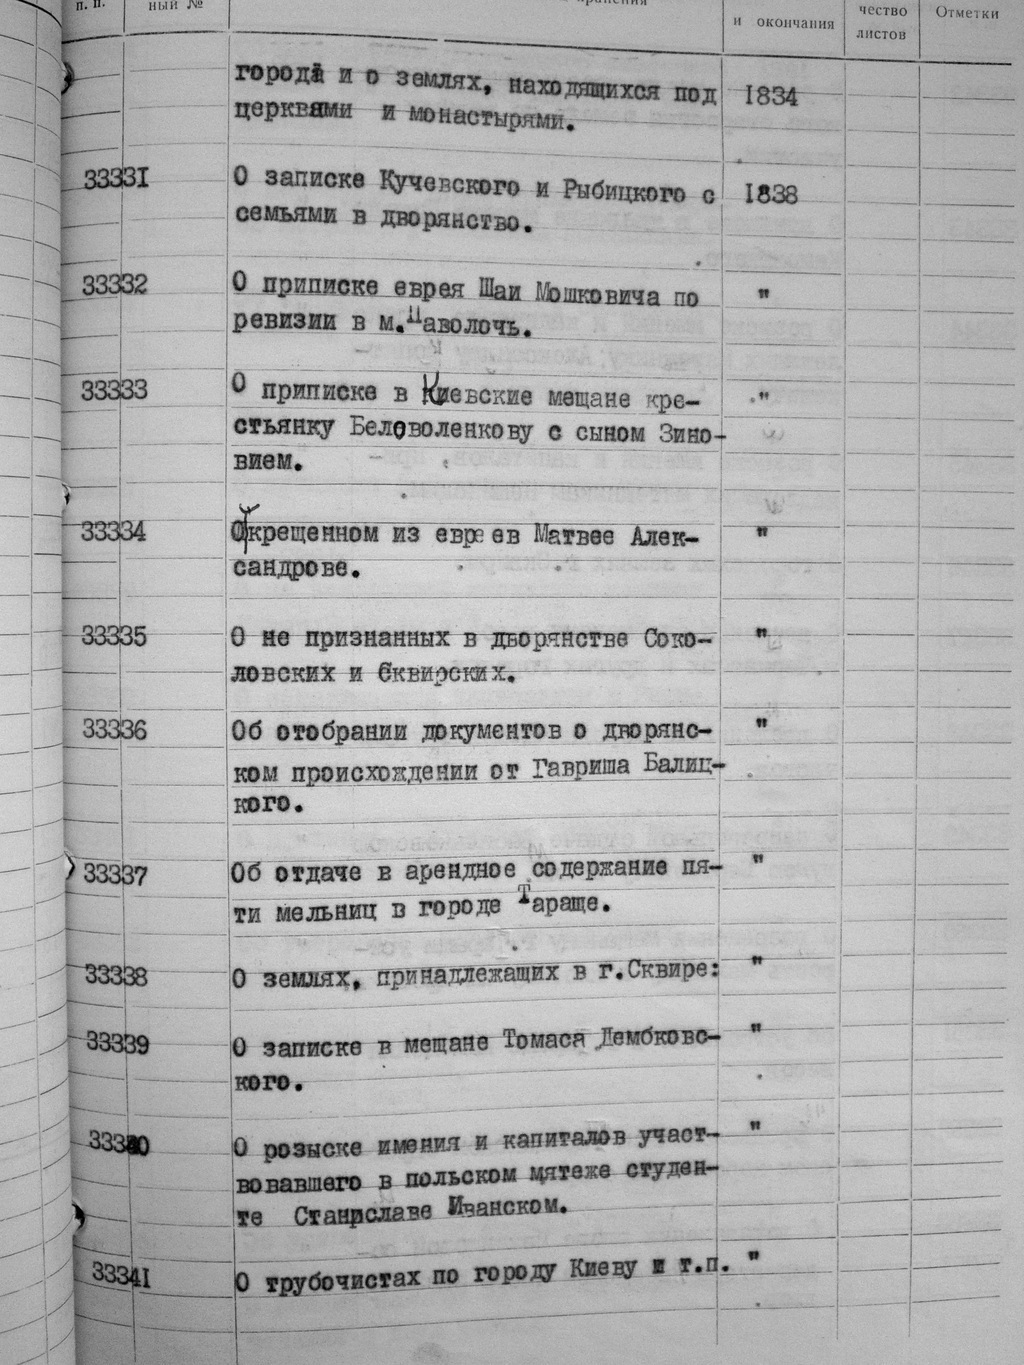 п. п. ный № хранения и окончания чество листов Отметки
города и о землях, находящихся под 1834
церквами и монастырями.
33331 О записке Кучевского и Рыбицкого с 1838
семьями в дворянство.
33332 О приписке еврея Шаи Мошковича по "
ревизии в м.Паволочь.
33333 О приписке в Киевские мещане кре- "
стьянку Беловоленкову с сыном Зино-
вием.
33334 О крещенном из евреев Матвее Алек- "
сандрове.
33335 О не признанных в дворянстве Соко- "
ловских и Сквирских.
33336 Об отобрании документов о дворянс- "
ком происхождении от Гавриша Балиц-
кого.
33337 Об отдаче в арендное содержание пя- "
ти мельниц в городе Тараще.
33338 О землях, принадлежащих в г.Сквире: "
33339 О записке в мещане Томаса Дембковс- "
кого.
33340 О розыске имения и капиталов участ- "
вовавшего в польском мятеже студен-
те Станиславе Иванском.
33341 О трубочистах по городу Киеву и т.п. "